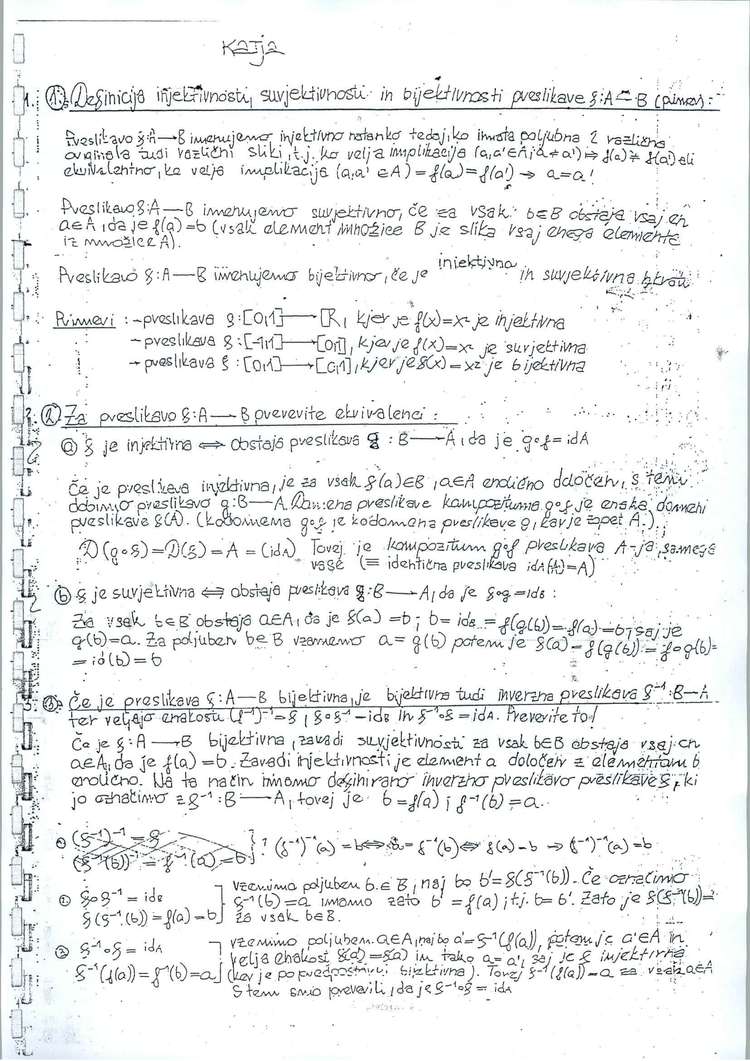 Katja
1. ① Definicija injektivnosti, surjektivnosti in bijektivnosti preslikave f:A→B (primeri):
Preslikavo f:A→B imenujemo injektivno natanko tedaj, ko imata poljubna 2 različna
originala tudi različni sliki, t.j. ko velja implikacija (a,a'∈A; a≠a') ⇒ f(a) ≠ f(a') ali
ekvivalentno, ko velja implikacija (a,a' ∈A) = f(a)=f(a') → a=a'
Preslikavo f:A→B imenujemo surjektivno, če za vsak b∈B obstaja vsaj en
a∈A, da je f(a)=b (vsak element množice B je slika vsaj enega elementa
iz množice A).
Preslikavo f:A→B imenujemo bijektivno, če je injektivna in surjektivna hkrati
Primeri: - preslikava f:[0,1]→R, kjer je f(x)=x² je injektivna
- preslikava f:[-1,1]→[0,1], kjer je f(x)=x² je surjektivna
- preslikava f:[0,1]→[0,1], kjer je f(x)=x² je bijektivna
2. ② Za preslikavo f:A→B preverite ekvivalenci:
ⓐ f je injektivna ⇔ obstaja preslikava g:B→A, da je g∘f=idA
Če je preslikava injektivna, je za vsak f(a)∈B, a∈A enolično določen, s tem
dobimo preslikavo g:B→A. domena preslikave kompozituma g∘f je enaka domeni
preslikave f(A). (kodomena g∘f je kodomena preslikave g, kar je zopet A.)
D(g∘f)=D(f)=A=(idA) Torej je kompozitum g∘f preslikava A-ja samega
vase (≡ identična preslikava idA(A)=A)
ⓑ f je surjektivna ⇔ obstaja preslikava g:B→A, da je f∘g=idB:
Za vsak b∈B obstaja a∈A, da je f(a)=b; b=idB=f(g(b))=f(a)=b, saj je
g(b)=a. Za poljuben b∈B vzamemo a=g(b) potem je f(a)=f(g(b))=f∘g(b)=
=id(b)=b
3. ③ Če je preslikava f:A→B bijektivna, je bijektivna tudi inverzna preslikava f⁻¹:B→A
ter veljajo enakosti (f⁻¹)⁻¹=f, f∘f⁻¹=idB in f⁻¹∘f=idA. Preverite to!
Če je f:A→B bijektivna, zaradi surjektivnosti za vsak b∈B obstaja vsaj en
a∈A, da je f(a)=b. Zaradi injektivnosti je element a določen z elementom b
enolično. Na ta način imamo definirano inverzno preslikavo preslikave f, ki
jo označimo z f⁻¹:B→A, torej je b=f(a); f⁻¹(b)=a.
(f⁻¹)⁻¹=f
(f⁻¹(b))⁻¹=f⁻¹(a)=b } ? (f⁻¹)⁻¹(a)=b ⇔ a=f⁻¹(b) ⇔ f(a)=b → (f⁻¹)⁻¹(a)=b
① f∘f⁻¹=idB ] vzemimo poljuben b∈B, naj bo b'=f(f⁻¹(b)). Če označimo
f(f⁻¹(b))=f(a)=b f⁻¹(b)=a imamo zato b'=f(a); t.j. b=b'. Zato je f(f⁻¹(b))=
za vsak b∈B.
② f⁻¹∘f=idA ] vzemimo poljuben a∈A, naj bo a'=f⁻¹(f(a)), potem je a'∈A in
f⁻¹(f(a))=f⁻¹(b)=a velja enakost f(a)=f(a) in tako a=a', saj je f injektivna
(ker je po predpostavki bijektivna). Torej f⁻¹(f(a))=a za vsak a∈A
S tem smo preverili, da je f⁻¹∘f=idA